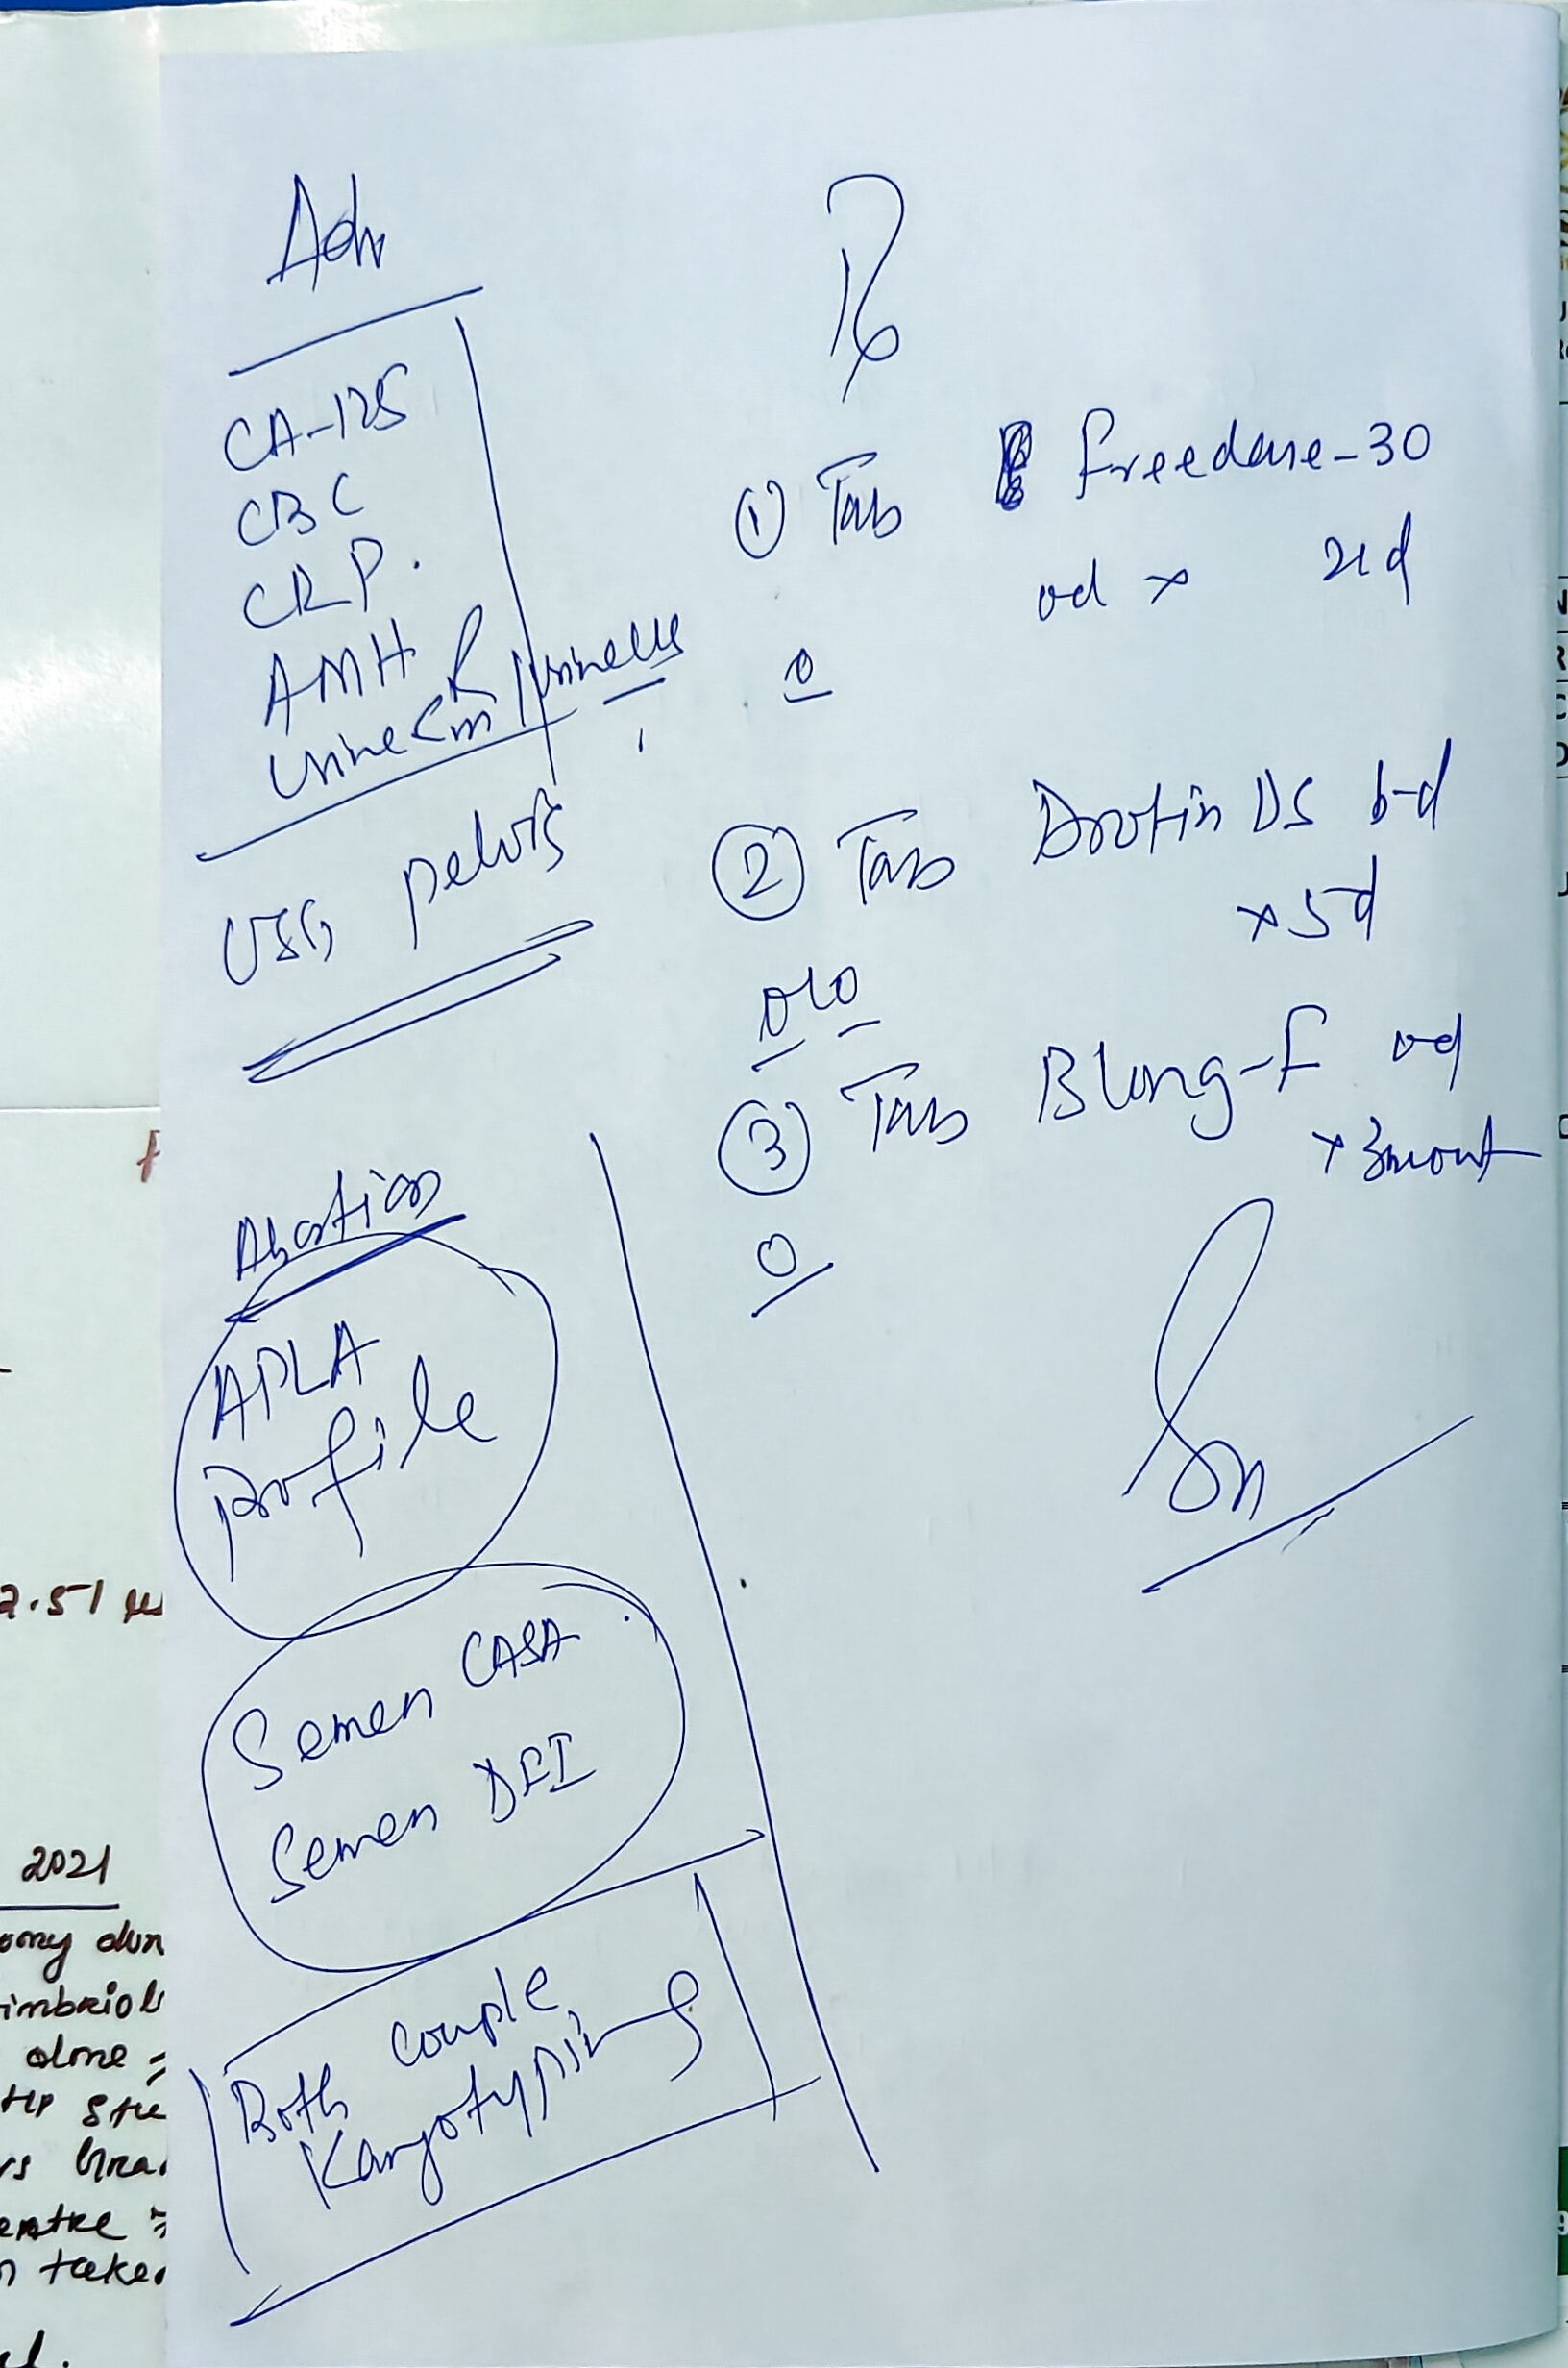 Adv
CA-125
CBC
CRP.
AMH
Urine R/m / Urine c/s
USG pelvis
Abortion
APLA
profile
Semen CASA
Semen DFI
Both couple
Karyotyping
Rx
① Tab Freedase-30
od x 21d
② Tab Drotin DS b-d
x 5d
③ Tab Blong-F od
x 3mont
2.51
2021
omy
imbriol
done =
entre
taken